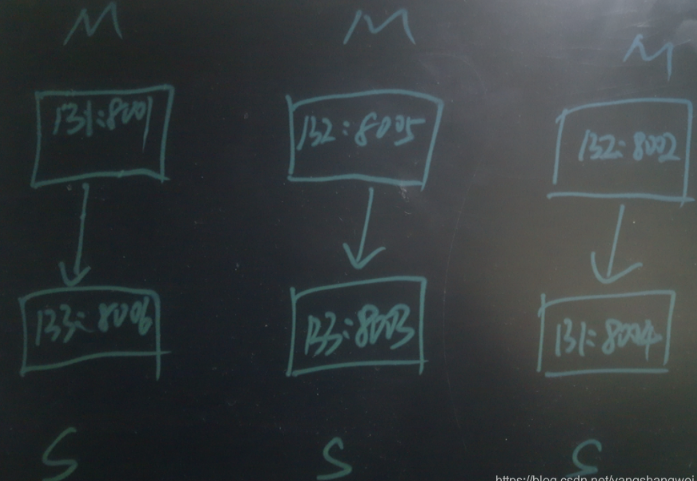 M M M
131:8001 132:8005 132:8002
133:8006 133:8003 131:8004
S S S
https://blog.csdn.net/yangshangwei